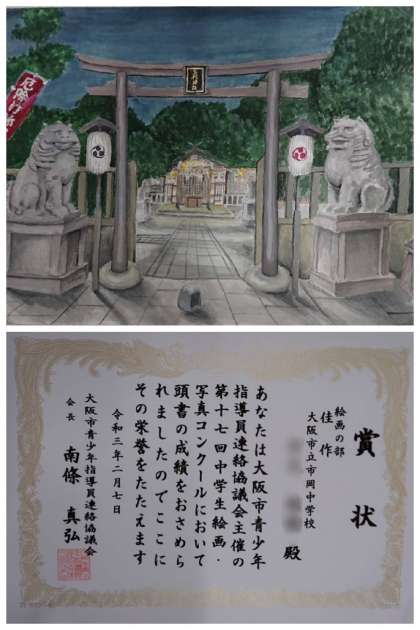 厄除け
賞状
絵画の部
佳作
大阪市立市岡中学校
殿
あなたは大阪市青少年
指導員連絡協議会主催の
第十七回中学生絵画・
写真コンクールにおいて
頭書の成績をおさめら
れましたのでここに
その栄誉をたたえます
令和三年二月七日
大阪市青少年指導員連絡協議会
会長
南條 真弘